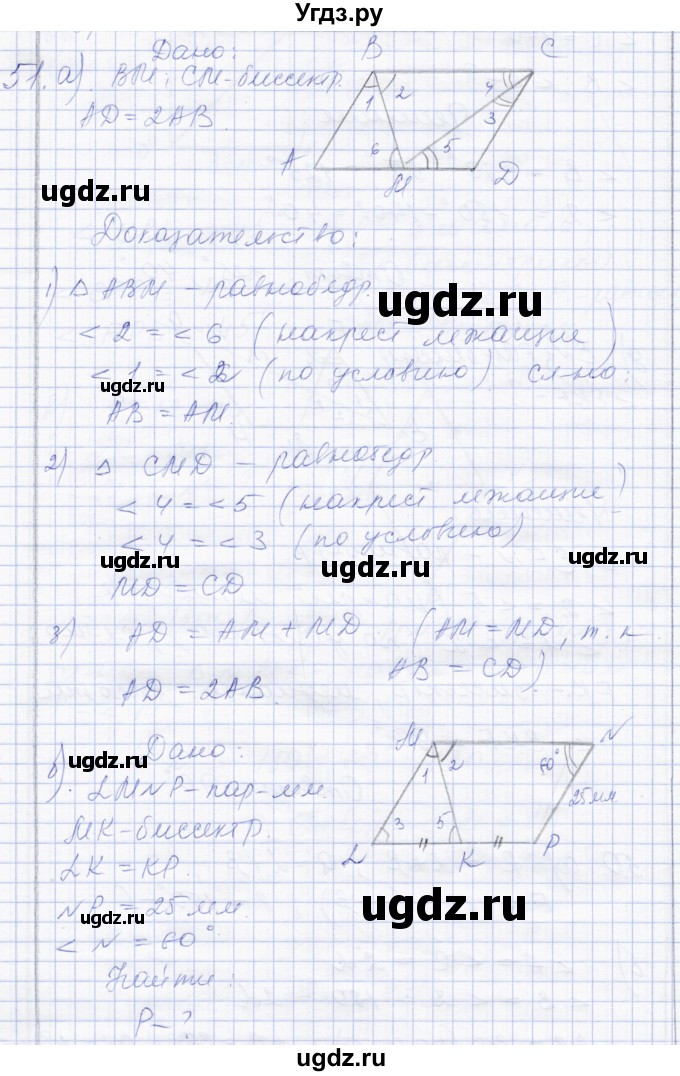 Угдз.ру
Дано:
51. а) ВМ, СМ-биссектр.
AD = 2AB.
B
C
1
2
4
3
6
5
A
M
D
ugdz.ru
Доказательство:
1) △ ABM – равнобедр.
ugdz.ru
< 2 = < 6 (накрест лежащие)
< 1 = < 2 (по условию) сл-но:
ugdz.ru
AB = AM.
2) △ CMD – равнобедр.
< 4 = < 5 (накрест лежащие)
< 4 = < 3 (по условию)
ugdz.ru
ugdz.ru
ugdz.ru
MD = CD
3) AD = AM + MD (AM = MD, т.к
AB = CD)
AD = 2AB.
Дано:
ugdz.ru
в). LMNP – пар-мм.
MK-биссектр.
LK = KP.
NP = 25 мм.
< N = 60°
Найти:
P – ?
M
N
1
2
60°
25 мм.
3
5
L
K
P
ugdz.ru
ugdz.ru
ugdz.ru